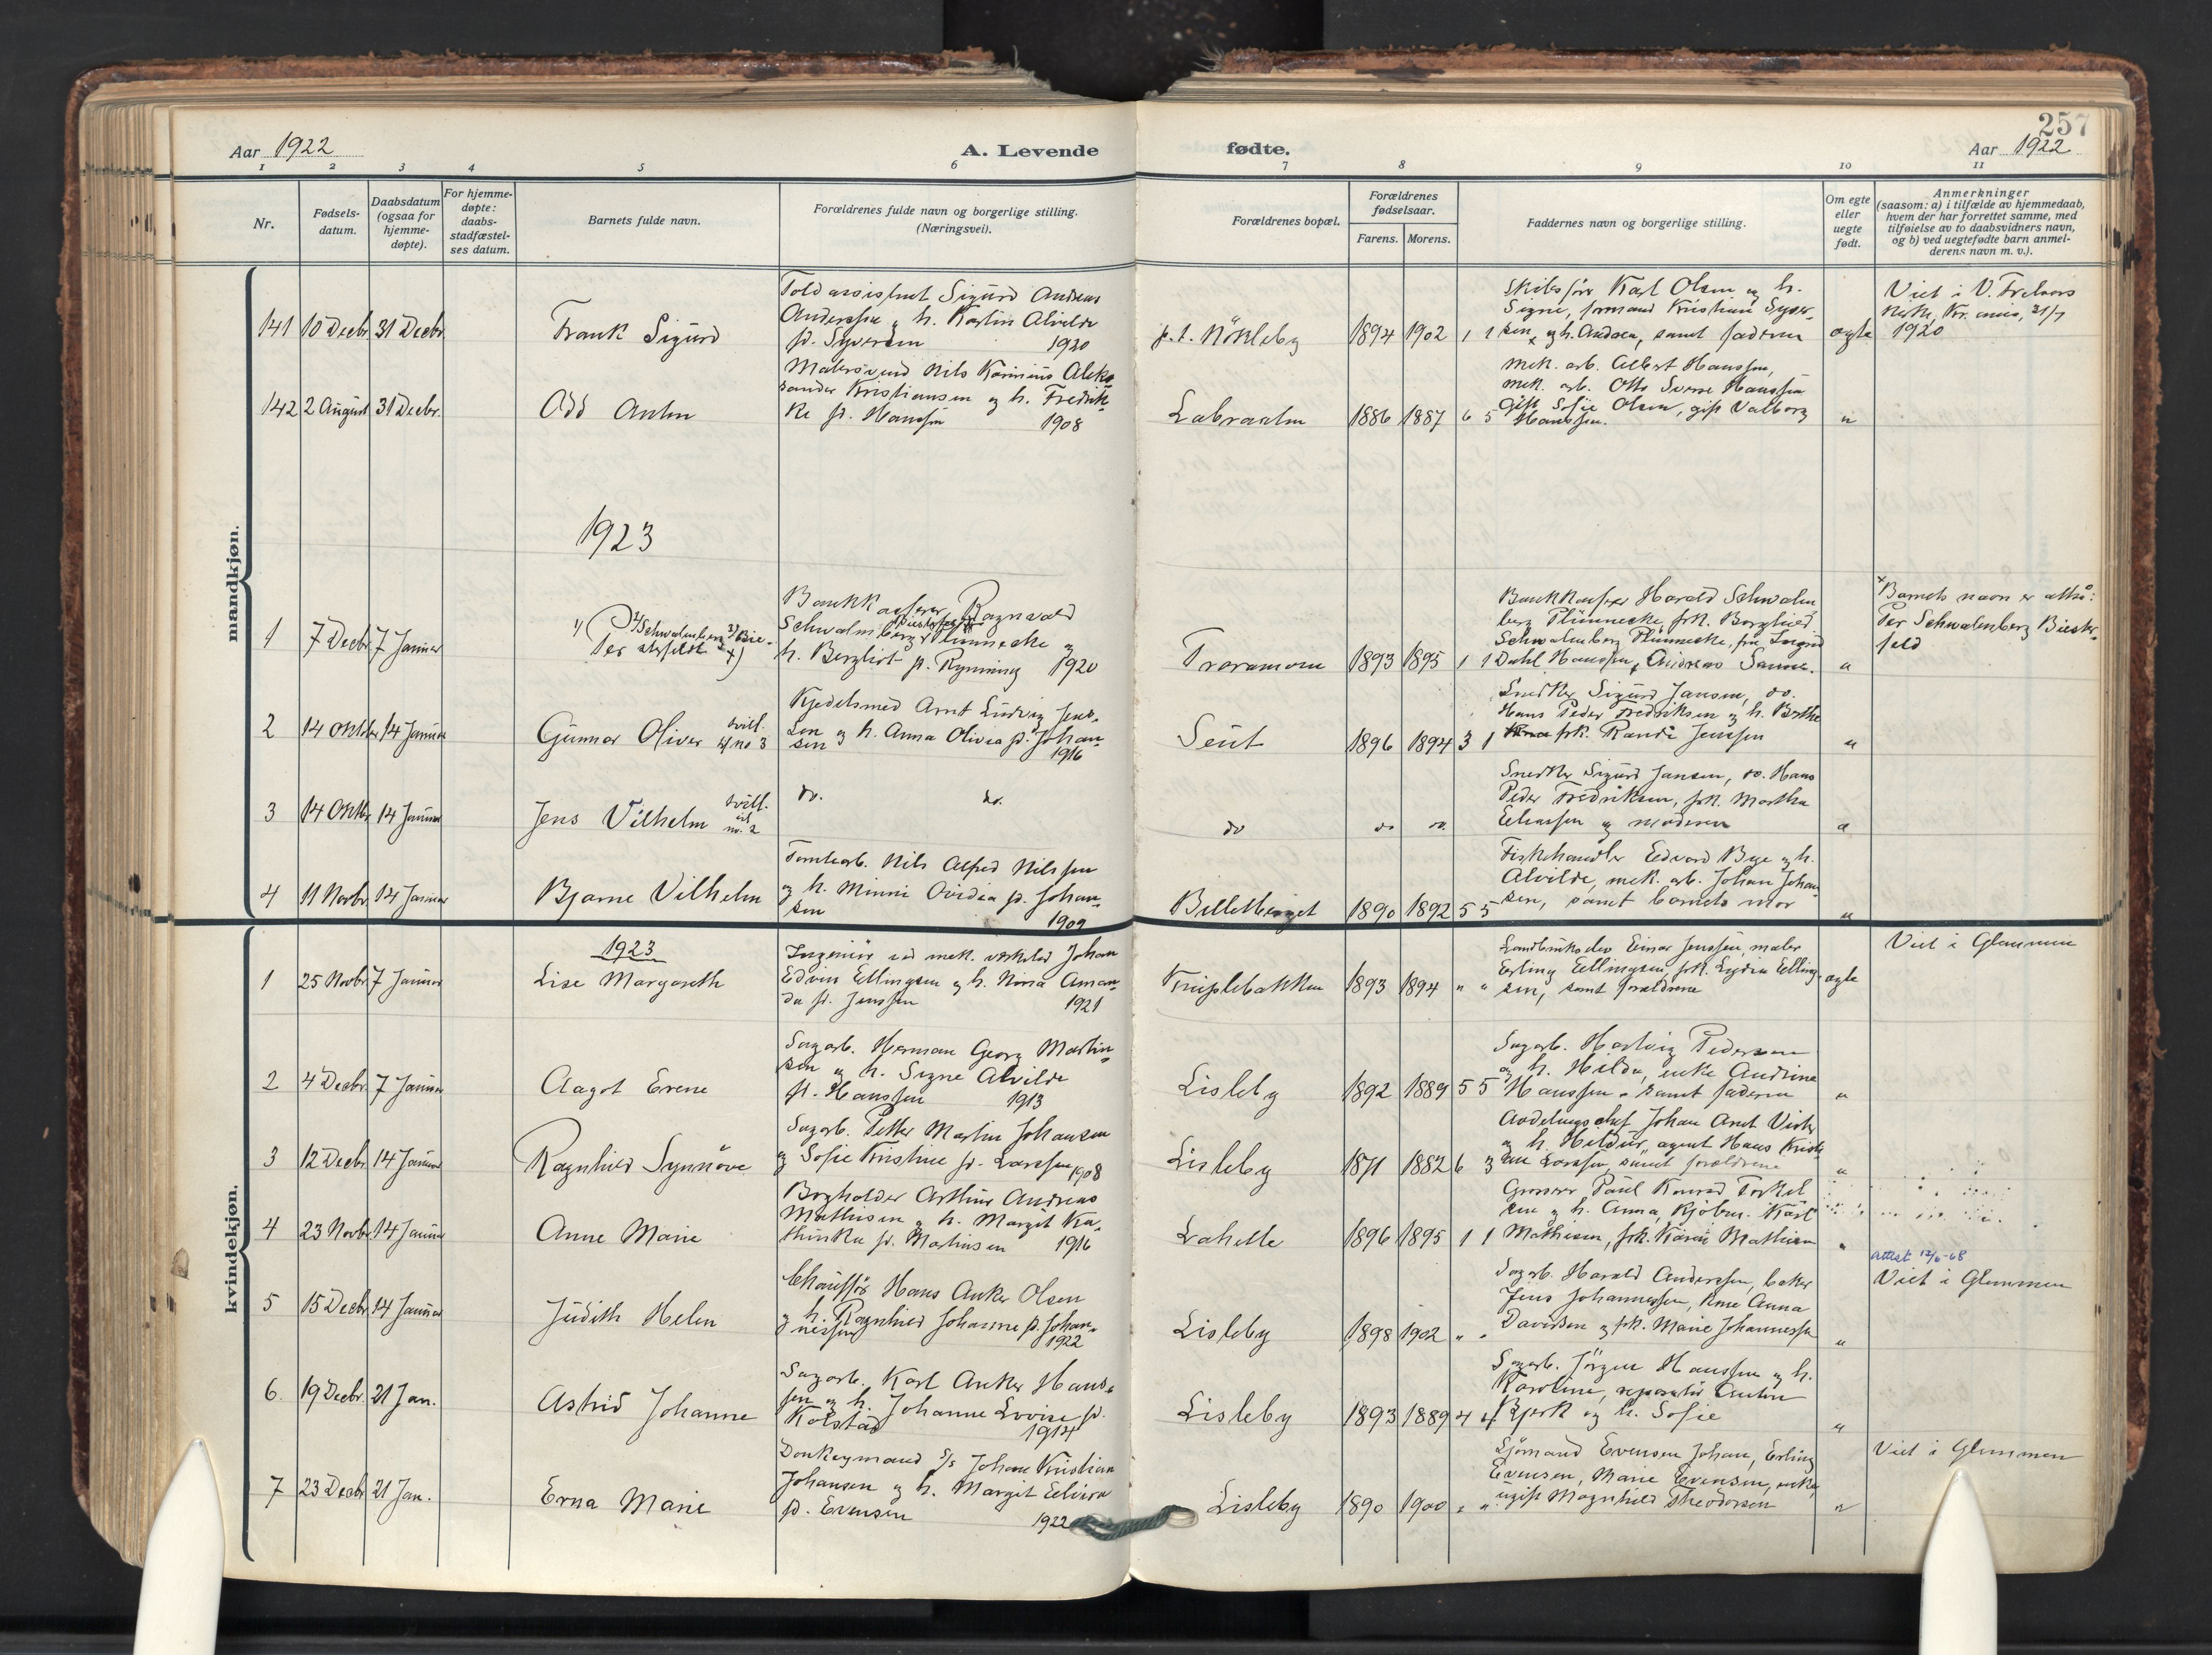 257
Aar 1922
A. Levende
fødte.
Aar 1922
1 2 3 4 5 6 7 8 9 10 11
Nr.
Fødsels-
datum.
Daabsdatum
(ogsaa for
hjemme-
døpte).
For hjemme-
døpte:
daabs-
stadfæstel-
ses datum.
Barnets fulde navn.
Forældrenes fulde navn og borgerlige stilling.
(Næringsvei).
Forældrenes bopæl.
Forældrenes
fødselsaar.
Farens. Morens.
Faddernes navn og borgerlige stilling.
Om egte
eller
uegte
født.
Anmerkninger
(saasom: a) i tilfælde av hjemmedaab,
hvem der har forrettet samme, med
tilføielse av to daabsvidners navn,
og b) ved uegtefødte barn anmel-
derens navn m. v.).
mandkjøn.
141 10 Decbr 31 Decbr.
Frank Sigurd
Toldassistent Sigurd Andreas
Anderssen og h. Karlin Alvilde
f. Syversen 1920
p.t. Nökleby 1894 1902 1 1
Skibsför Karl Olsen og h.
Signe, formand Kristian Syver-
sen og h. Andrea, samt faderen
ægte
Viet i V. Fredriks
kirke, 31/7
1920
142 2 August 31 Decbr.
Odd Anton
Malersvend Nils Karinius Alek-
sander Kristiansen og h. Fredrik-
ke f. Hanssen 1908
Labraaten 1886 1887 6 5
mek. arb. Albert Hanssen,
mek. arb. Otto Sverre Hanssen
gift Sofie Olsen, gift Valborg
Hanssen.
"
1923
1 7 Decbr 7 Januar
1) Per 2) Schwalenberg 3) Bie-
sterfeldt x)
Bankkasserer Ragnvald
Schwalenberg Plünnecke og
h. Bergliot f. Rynning 1920
Traramoen 1893 1895 1 1
Bankkasserer Harald Schwalen
berg Plünnecke, frk. Borghild
Schwalenberg Plünnecke, fru Ingrid
Dahl Hanssen, Andreas Sanne.
"
x Barnets navn er altså:
Per Schwalenberg Biester-
feld
2 14 Oktbr 14 Januar
Gunnar Oliver tvill. t/ no 3
Kjedelsmed Arnt Ludvig Jens-
sen og h. Anna Olivia f. Johan-
sen 1916
Seut 1896 1894 3 1
Snedker Sigurd Jansen, do.
Hans Peder Fredriksen og h. Berthe
frk. Randi Jenssen
"
3 14 Oktbr 14 Januar
Jens Vilhelm tvill. til no. 2
do. do.
do do do.
Snedker Sigurd Jansen, do. Hans
Peder Fredriksen, frk. Martha
Eliassen og moderen
"
4 11 Novbr 14 Januar
Bjarne Vilhelm
Tomtearb. Nils Alfred Nilssen
og h. Minni Ovidia f. Johan-
sen 1909
Belleberget 1890 1892 5 5
Fiskehandler Edvard Bye og h.
Alvilde, mek. arb. Johan Johan
sen, samt barnets mor
"
kvindekjøn.
1923
1 25 Novbr 7 Januar
Lise Margareth
Ingeniör ved mek. verksted Johan
Edvin Ellingsen og h. Nina Aman-
da f. Jenssen 1921
Kniplebakken 1893 1894 " "
Landbrukselev Einar Jenssen, maler
Erling Ellingsen, frk. Lydia Elling-
sen, samt forældrene
ægte
Viet i Glemmen
2 4 Decbr 7 Januar
Aagot Erene
Sagarb. Herman Georg Martin-
sen og h. Signe Alvilde
f. Hanssen 1913
Lisleby 1892 1889 5 5
Sagarb. Hartvig Pedersen
og h. Hilda, enke Andrine
Hanssen, samt faderen
"
3 12 Decbr 14 Januar
Ragnhild Synnöve
Sagarb. Petter Martin Johansen
og Sofie Kristine f. Larssen 1908
Lisleby 1871 1882 6 3
Avdelingschef Johan Arnt Vister
og h. Hildur, agent Hans Kristi
an Larssen, samt forældrene
"
4 23 Novbr 14 Januar
Anne Marie
Bogholder Arthur Andreas
Mathisen og h. Margit Ka-
thinka f. Martinsen 1916
Lahelle 1896 1895 1 1
Grosserer Paul Konrad Torkel
sen og h. Anna, Kjöbm. Karl
Mathisen, frk. Karin Mathisen
"
5 15 Decbr 14 Januar
Judith Helen
Chauffør Hans Anker Olsen
og h. Ragnhild Johanne f. Johan-
nessen 1922
Lisleby 1898 1902 " "
Sagarb. Harald Anderssen, baker
Jens Johannessen, kone Anna
Davidsen og frk. Marie Johannessen
"
attest 12/6-68
Viet i Glemmen
6. 19 Decbr 21 Jan.
Astrid Johanne
Sagarb. Karl Anker Hans-
sen og h. Johanne Lovise f.
Kolstad 1914
Lisleby 1893 1889 4 4
Sagarb. Jörgen Hanssen og h.
Karoline, reparatör Anton
Bjerk og h. Sofie
"
7 23 Decbr 21 Jan.
Erna Marie
Donkeymand S/s Johan Kristian
Johansen og h. Margit Elvira
f. Evensen 1922
Lisleby 1890 1900 " "
Sjömand Evensen Johan, Erling
Evensen, Marie Evensen, enke,
ugift Magnhild Theodorsen
"
Viet i Glemmen